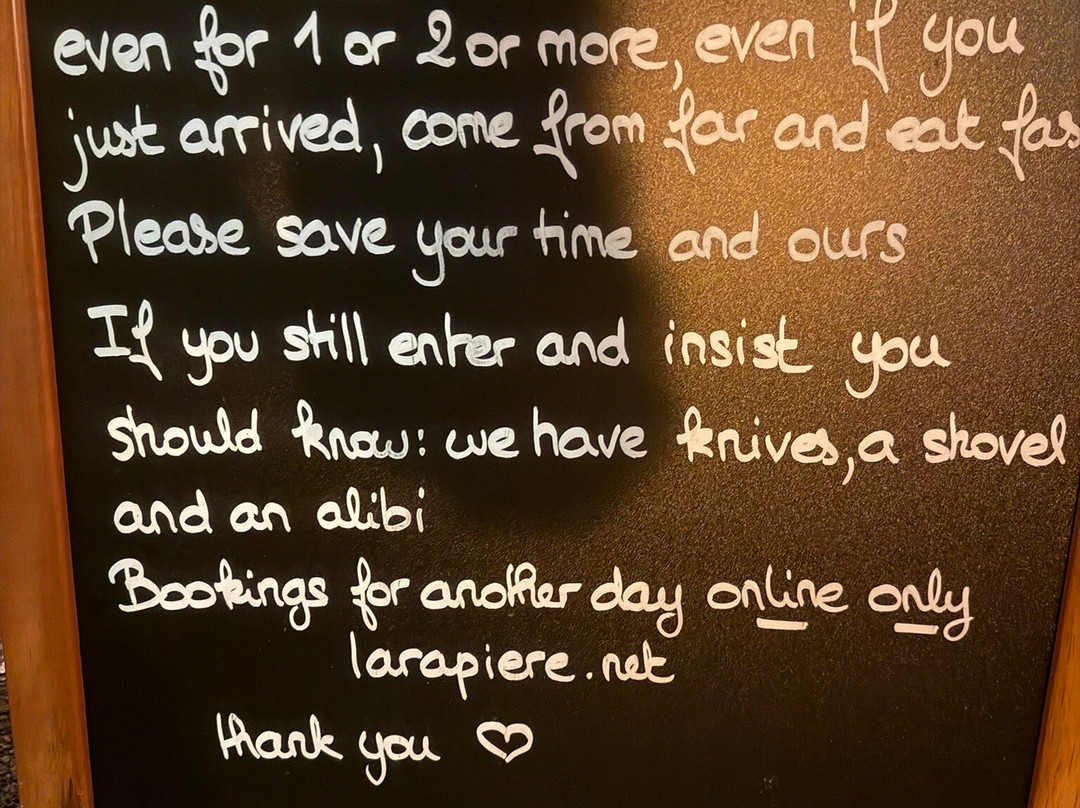 even for 1 or 2 or more, even if you
just arrived, come from far and eat fas
Please save your time and ours
If you still enter and insist you
should know: we have knives, a shovel
and an alibi
Bookings for another day online only
larapiere.net
thank you ♡